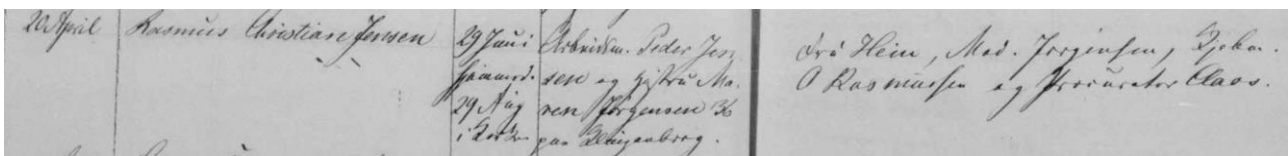 20 April
Rasmus Christian Jensen
29 Juni
hjemmed.
29 Aug
i Kirken
Arbeidsm. Peder Jen
sen og Hustru Ma-
ren Jørgensen 36
paa Klingenberg.
Fru Hein, Mad. Jørgensen, Kjøbm.
O Rasmussen og Procurator Claos.